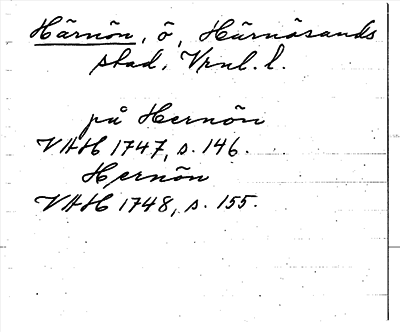 Härnön, ö, Härnösands
stad, Vrnl. l.
på Hernön
VAH 1747, s. 146.
Hernön
VAH 1748, s. 155.